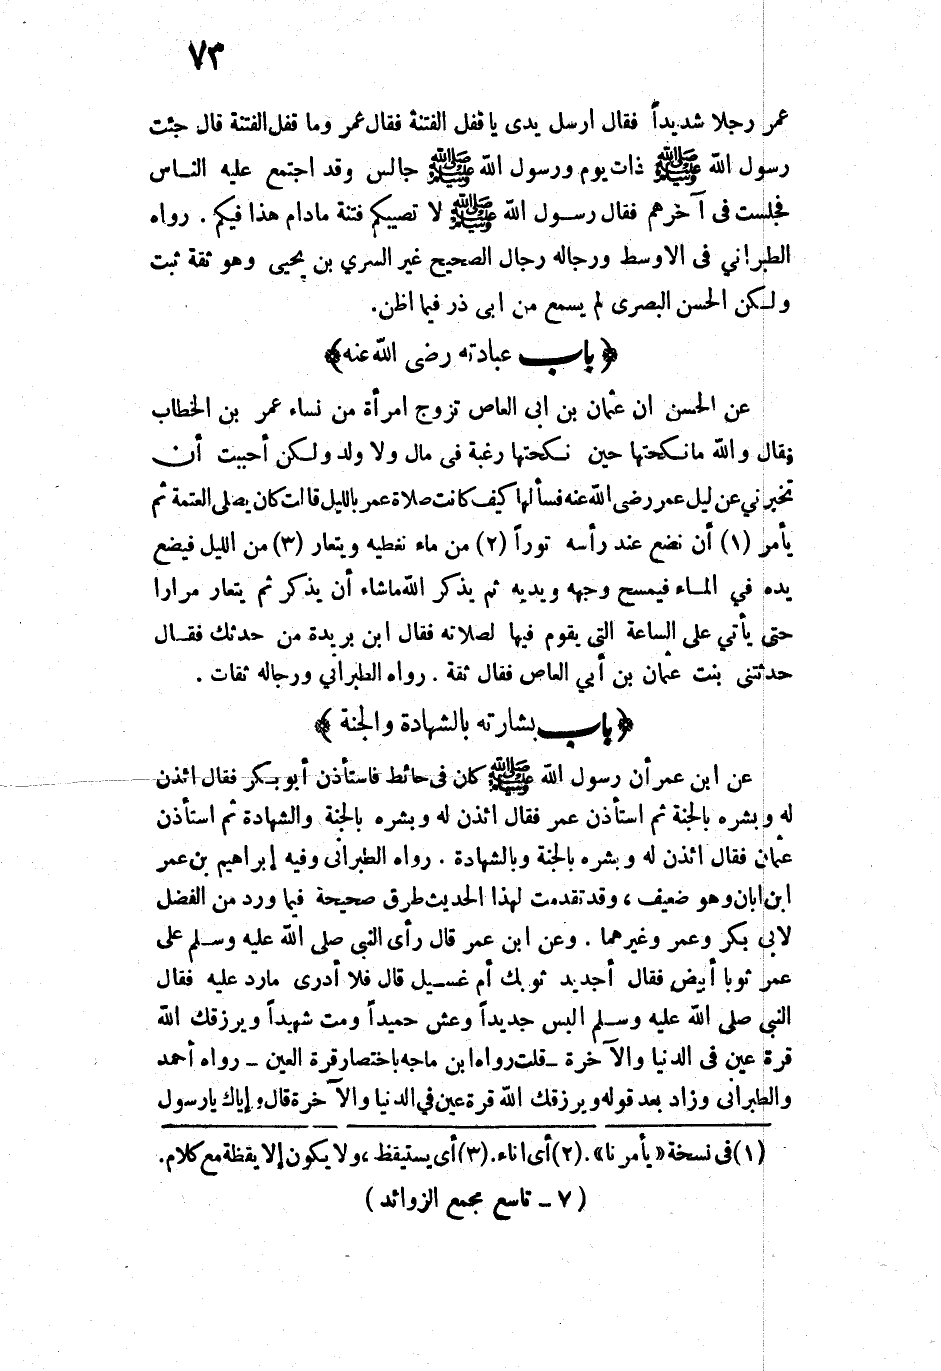 ٧٣
عمر رجلا شديداً فقال ارسل يدى يا قفل الفتنة فقال عمر وما قفل الفتنة قال جئت
رسول الله ﷺ ذات يوم ورسول الله ﷺ جالس وقد اجتمع عليه النـاس
فجلست فى آخرهم فقال رسـول الله ﷺ لا تصيبكم فتنة مادام هذا فيكم . رواه
الطبراني فى الاوسط ورجاله رجال الصحيح غير السري بن يحيى وهو ثقة ثبت
ولـكن الحسن البصرى لم يسمع من ابى ذر فيما اظن.
﴿باب عبادته رضى الله عنه﴾
عن الحسن ان عثمان بن ابى العاص تزوج امرأة من نساء عمر بن الخطاب
فقال والله مانـكحتها حين نـكحتها رغبة فى مال ولا ولد ولـكن أحببت أن
تخبرني عن ليل عمر رضى الله عنه فسألها كيف كانت صلاة عمر بالليل قالت كان يصلى العتمة ثم
يأمر (١) أن نضع عند رأسه توراً (٢) من ماء نغطيه ويتعار (٣) من الليل فيضع
يده في المـاء فيمسح وجهه ويديه ثم يذكر الله ماشاء أن يذكر ثم يتعار مرارا
حتى يأتي على الساعة التى يقوم فيها لصلاته فقال ابن بريدة من حدثك فقـال
حدثتنى بنت عثمان بن أبي العاص فقال ثقة . رواه الطبراني ورجاله ثقات .
﴿باب بشارته بالشهادة والجنة﴾
عن ابن عمر أن رسول الله ﷺ كان فى حائط فاستأذن أبو بـكر فقال ائذن
له وبشره بالجنة ثم استأذن عمر فقال ائذن له وبشره بالجنة والشهادة ثم استأذن
عثمان فقال ائذن له وبشره بالجنة وبالشهادة . رواه الطبرانى وفيه إبراهيم بن عمر
ابن ابان وهو ضعيف ، وقد تقدمت لهذا الحديث طرق صحيحة فيما ورد من الفضل
لابي بكر وعمر وغيرهما . وعن ابن عمر قال رأى النبي صلى الله عليه وسـلم على
عمر ثوبا أبيض فقال أجديد ثوبك أم غسـيل قال فلا أدرى مارد عليه فقال
النبي صلى الله عليه وسـلم البس جديداً وعش حميداً ومت شهيداً ويرزقك الله
قرة عين فى الدنيا والآخرة ـ قلت رواه ابن ماجه باختصار قرة العين ـ رواه أحمد
والطبرانى وزاد بعد قوله ويرزقك الله قرة عين في الدنيا والآخرة قال وإياك يارسول
(١) فى نسخة «يأمرنا» . (٢) أى اناء . (٣) أى يستيقظ ، ولا يكون إلا يقظة مع كلام .
( ٧ ـ تاسع مجمع الزوائد )